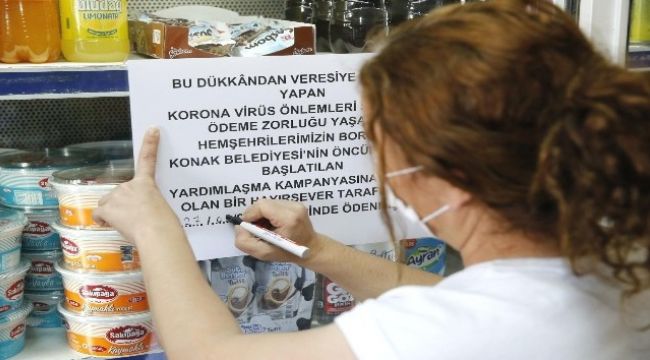 uludağ
LİMONATA
BU DÜKKÂNDAN VERESİYE
YAPAN
KORONA VİRÜS ÖNLEMLERİ
ÖDEME ZORLUĞU YAŞA
HEMŞEHRİLERİMİZİN BOR
KONAK BELEDİYESİ'NİN ÖNCÜ
BAŞLATILAN
YARDIMLAŞMA KAMPANYASINA
OLAN BİR HAYIRSEVER TARAF
İNDE ÖDENİ
Sakıpağa
Sakıpağa
KAYMAKLI YOĞURT
Ayran